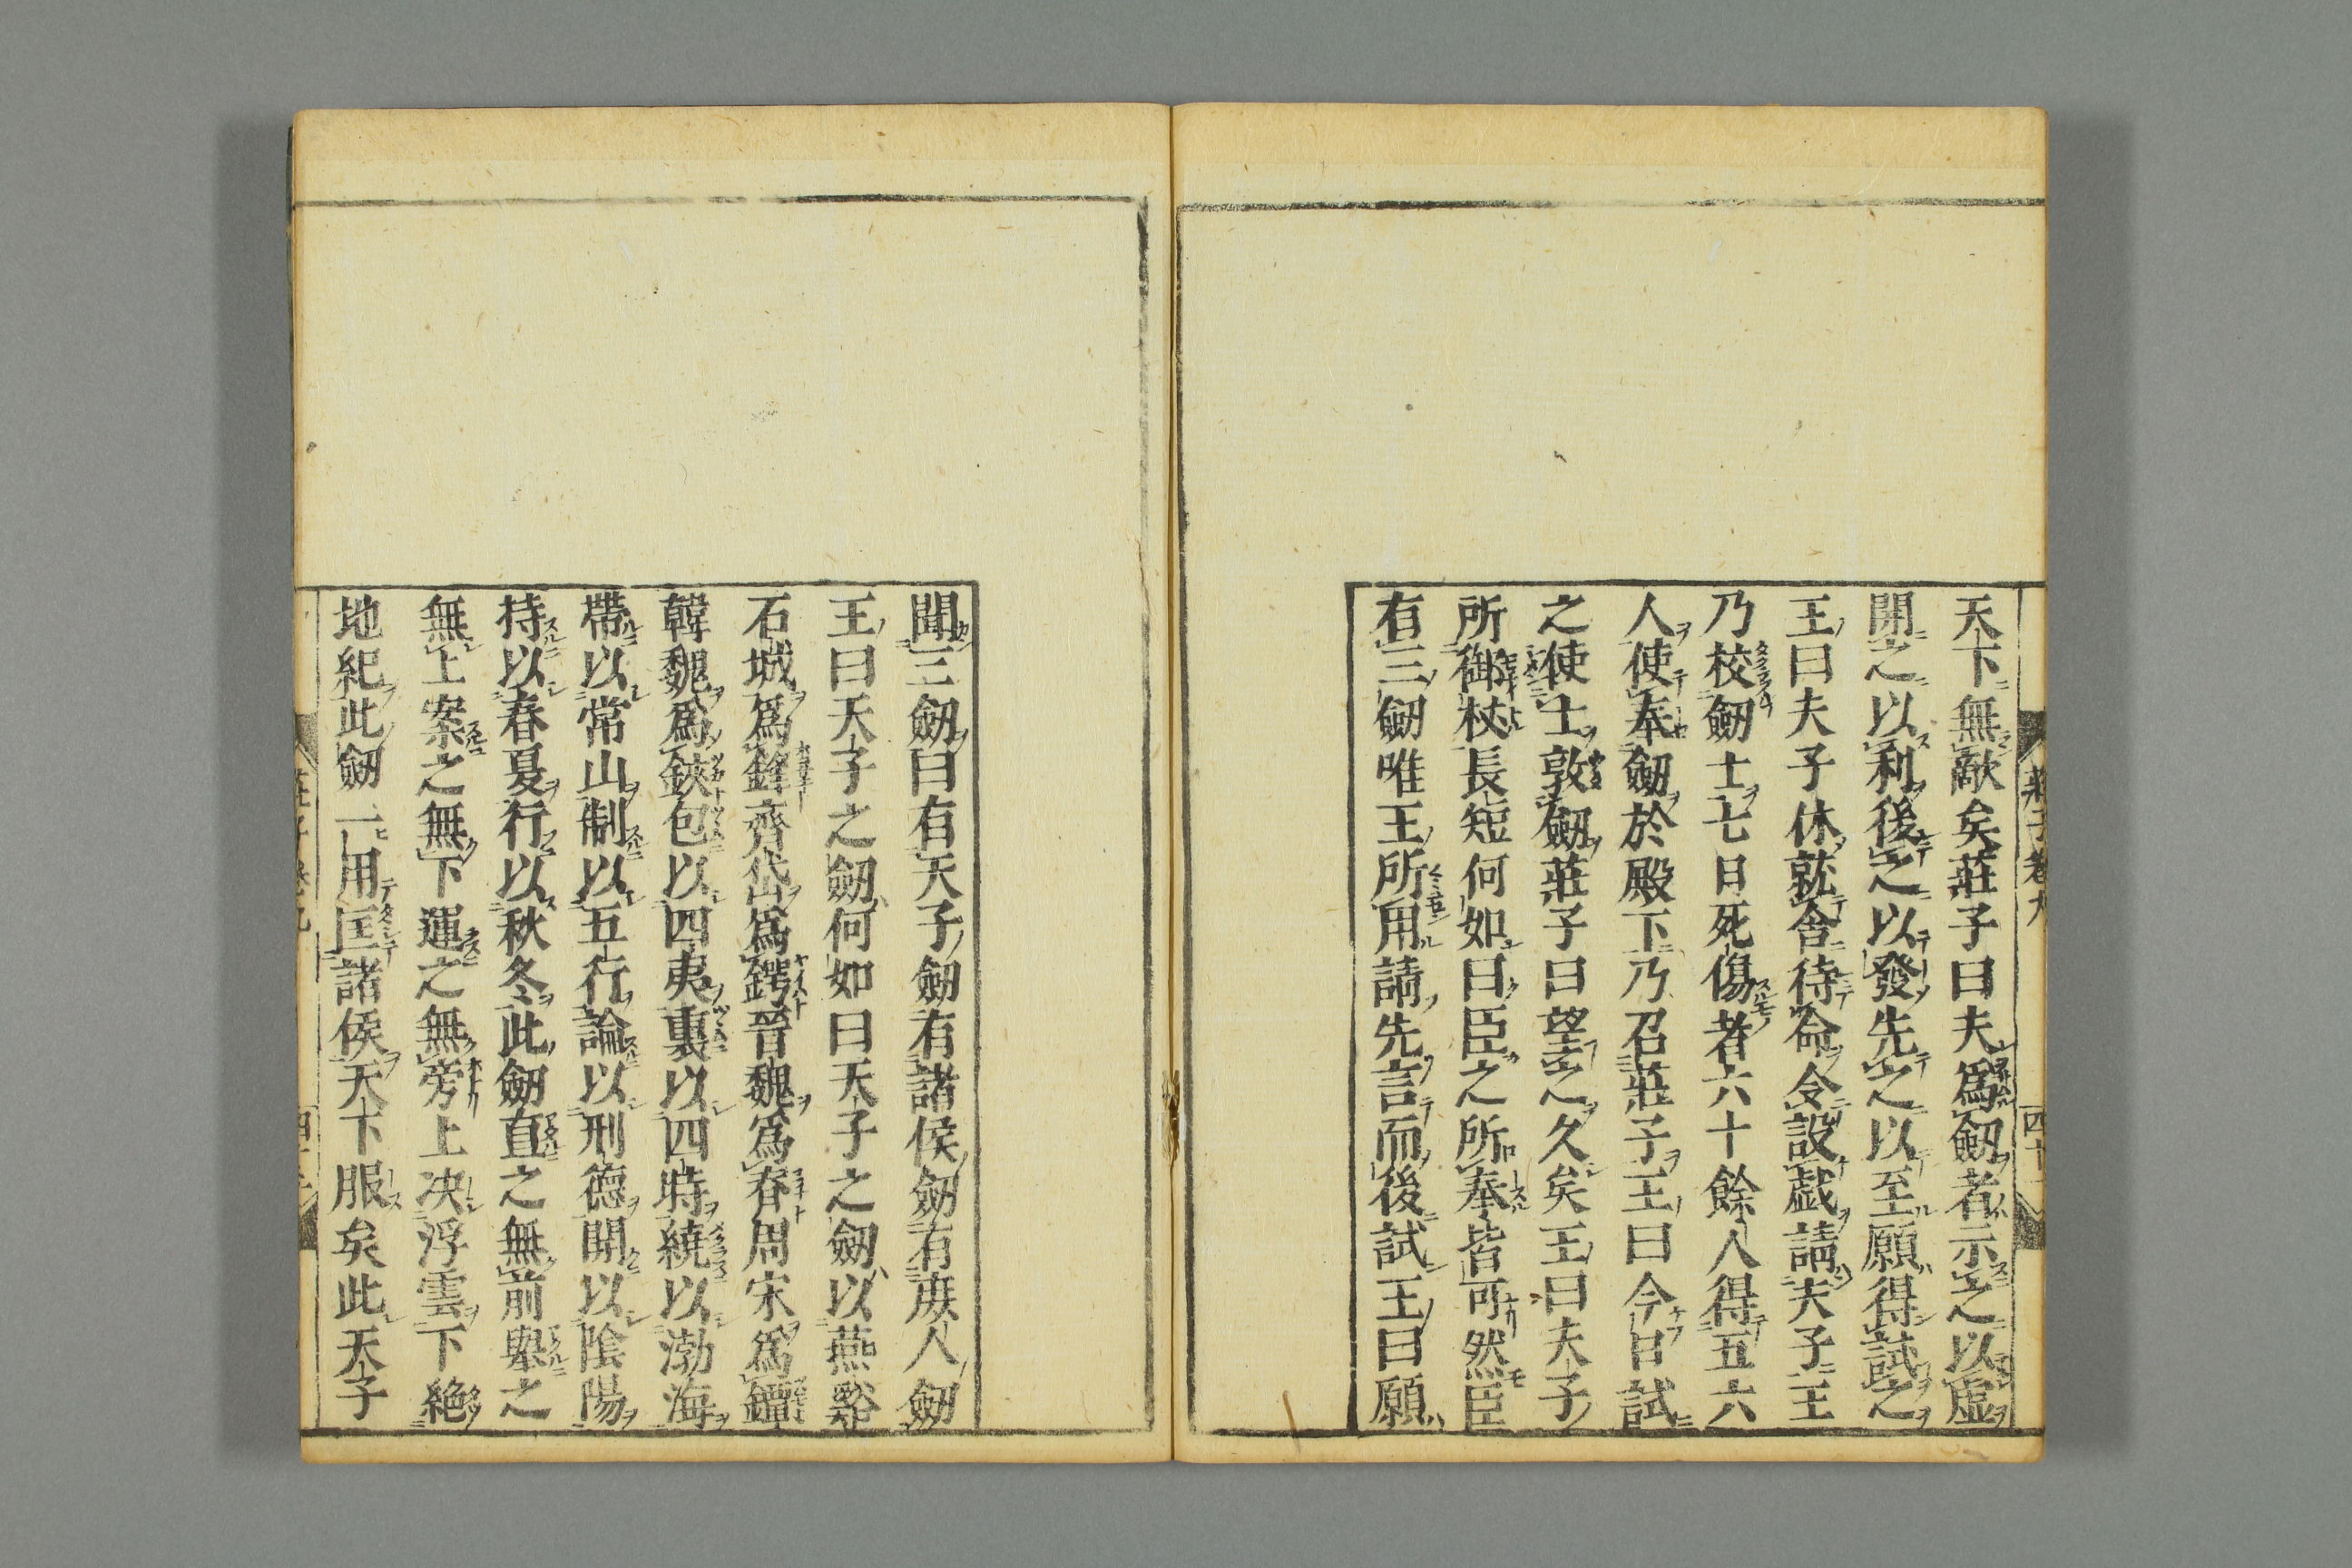 天下無敵矣莊子曰夫爲劒者示之以虛
開之以利後之以發先之以至願得試之
王曰夫子休就舍待命令設戲請夫子王
乃校劒士七日死傷者六十餘人得五六
人使奉劒於殿下乃召莊子王曰今日試
之使士敦劒莊子曰望之久矣王曰夫子
所御杖長短何如曰臣之所奉皆可然臣
有三劒唯王所用請先言而後試王曰願
聞三劒曰有天子劒有諸侯劒有庶人劒
王曰天子之劒何如曰天子之劒以燕谿
石城爲鋒齊岱爲鍔晉魏爲脊周宋爲鐔
韓魏爲鋏包以四夷裏以四時繞以渤海
帶以常山制以五行論以刑德開以陰陽
持以春夏行以秋冬此劒直之無前舉之
無上案之無下運之無旁上決浮雲下絕
地紀此劒一用匡諸侯天下服矣此天子